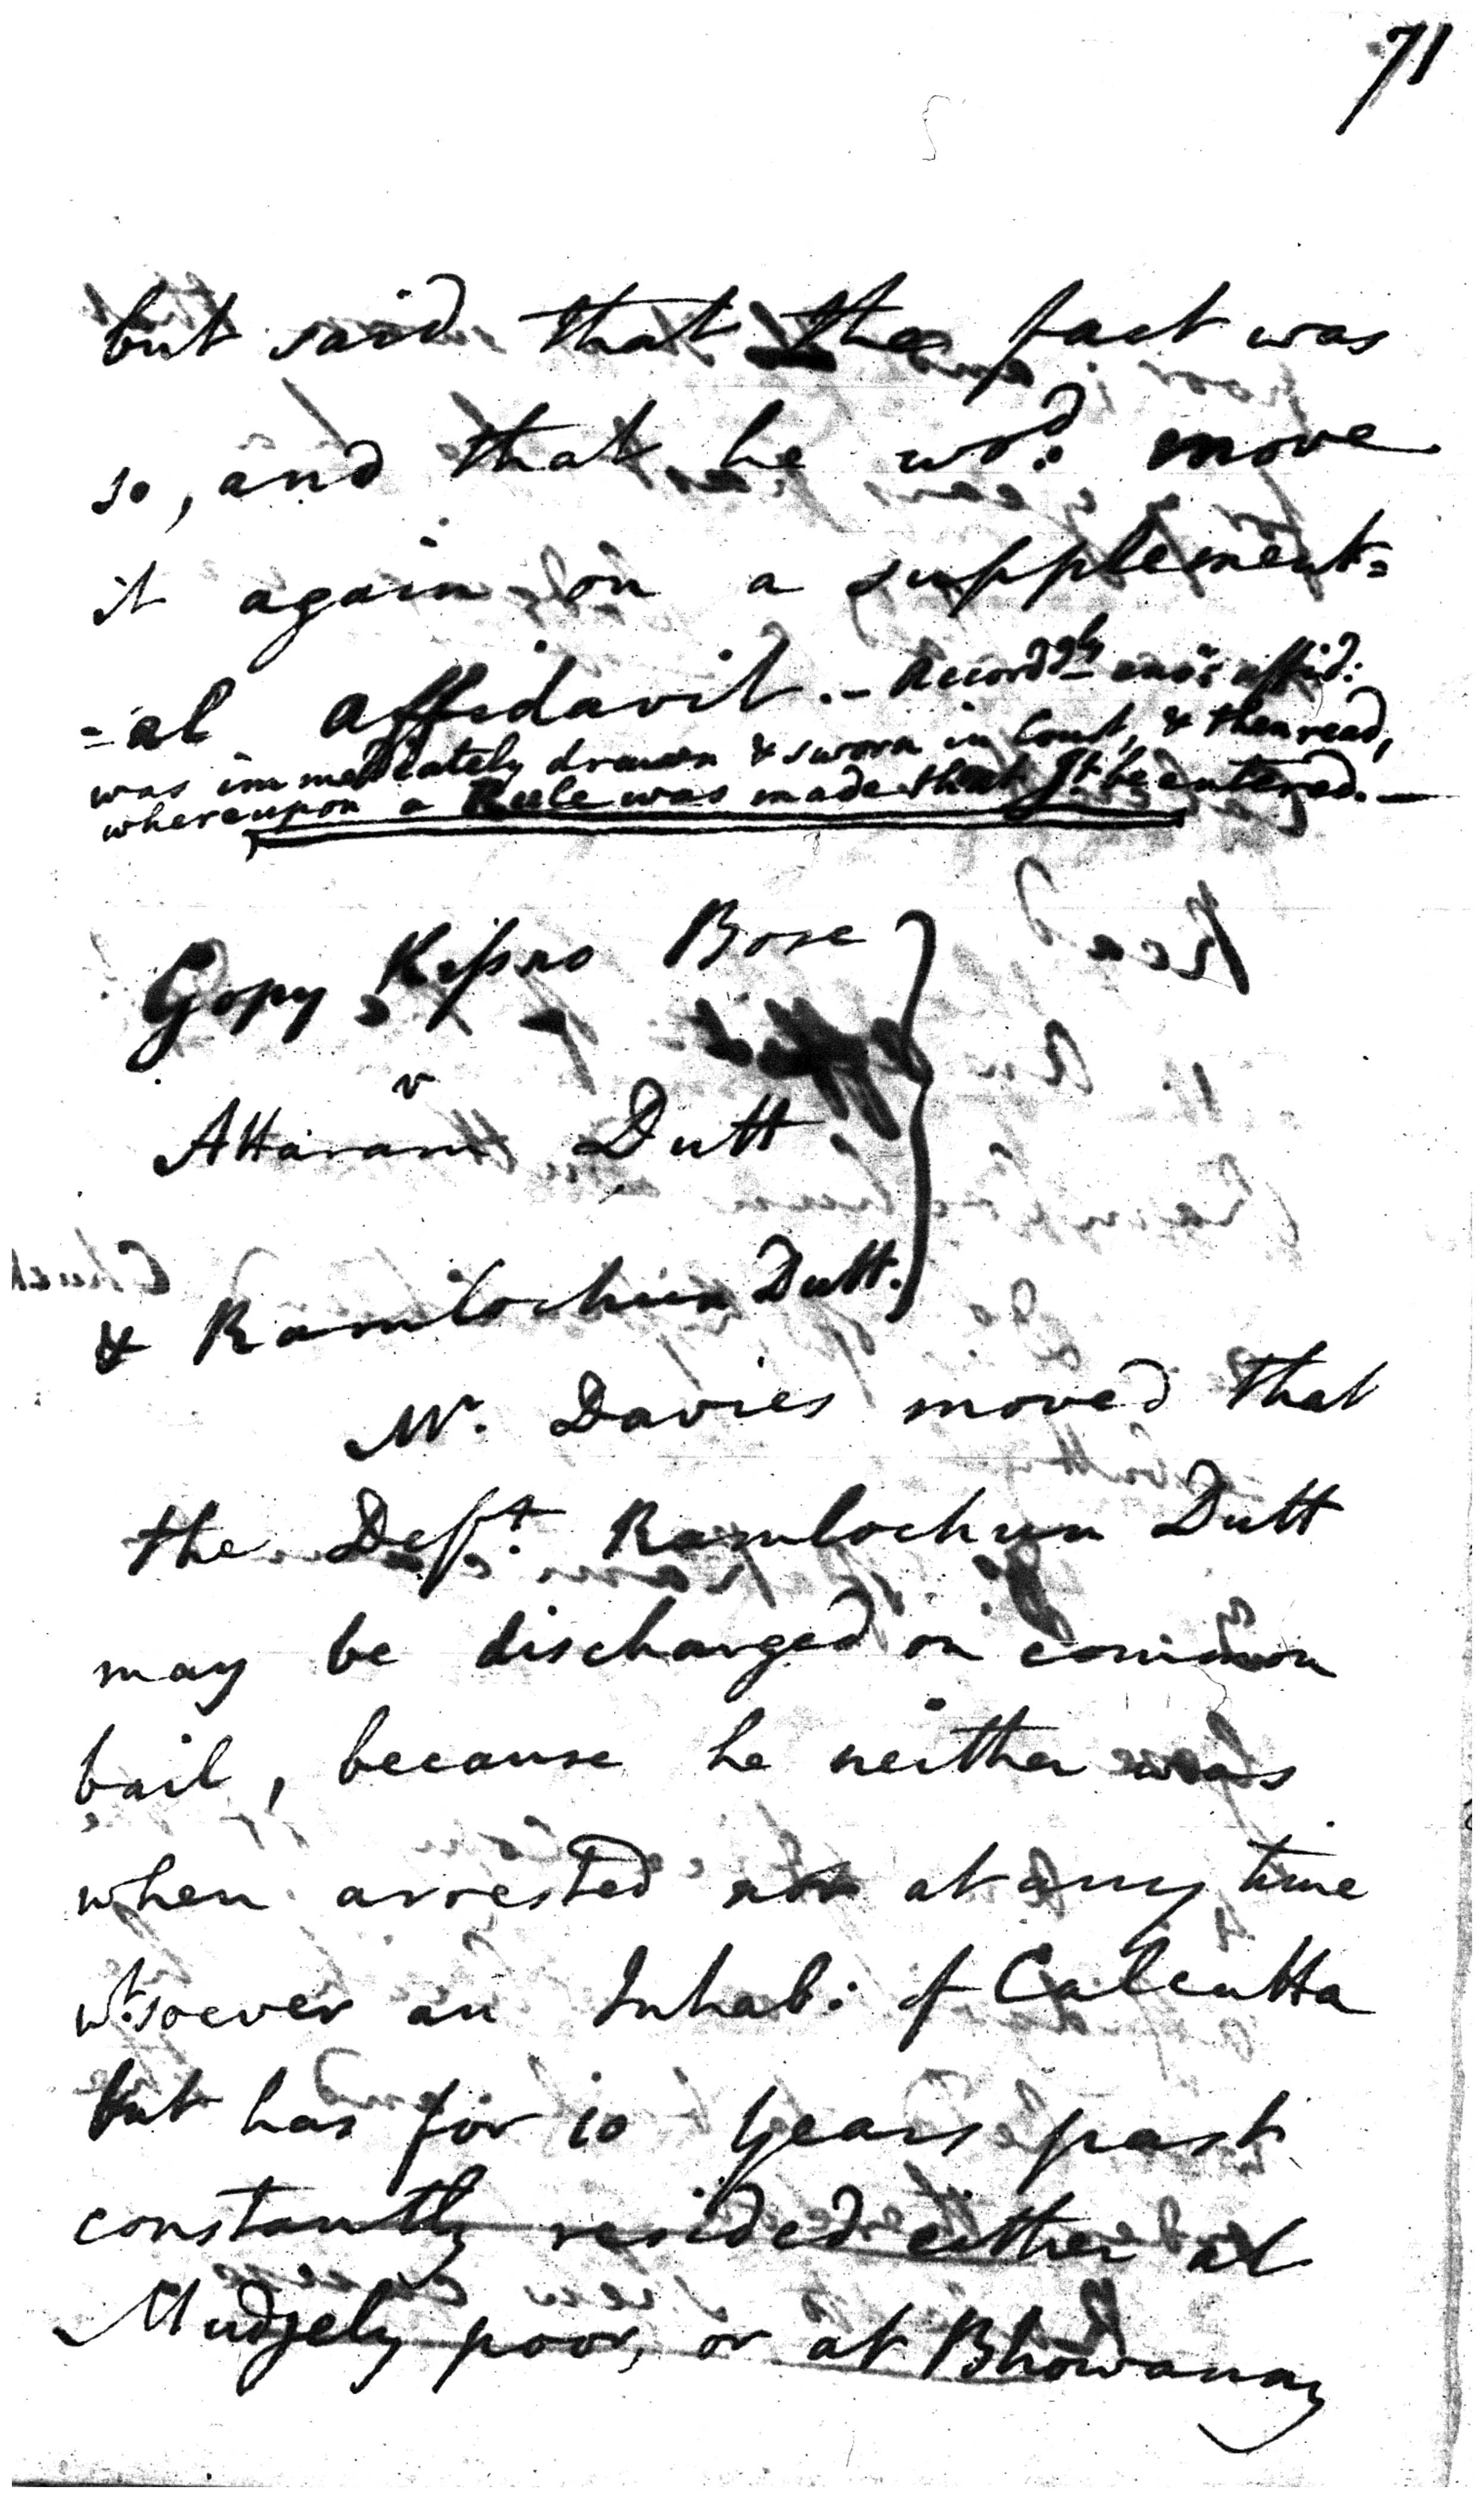 71
but said that the fact was
so, and that he wod. move
it again on a supplement=
=al affidavit. — Accordgly affid:
was immediately drawn & sworn in Court, & then read,
whereupon a Rule was made that Jt. be entered. —
Gopy Kissno Bose
v
Attaram Dutt
& Ramlochun Dutt.
Mr. Davies moved that
the Deft. Ramlochun Dutt
may be discharged on common
bail, because he neither was
when arrested nor at any time
wt.soever an Inhab: of Calcutta
but has for 10 Years past
constantly resided either at
Mudjely poor, or at Bhowanay